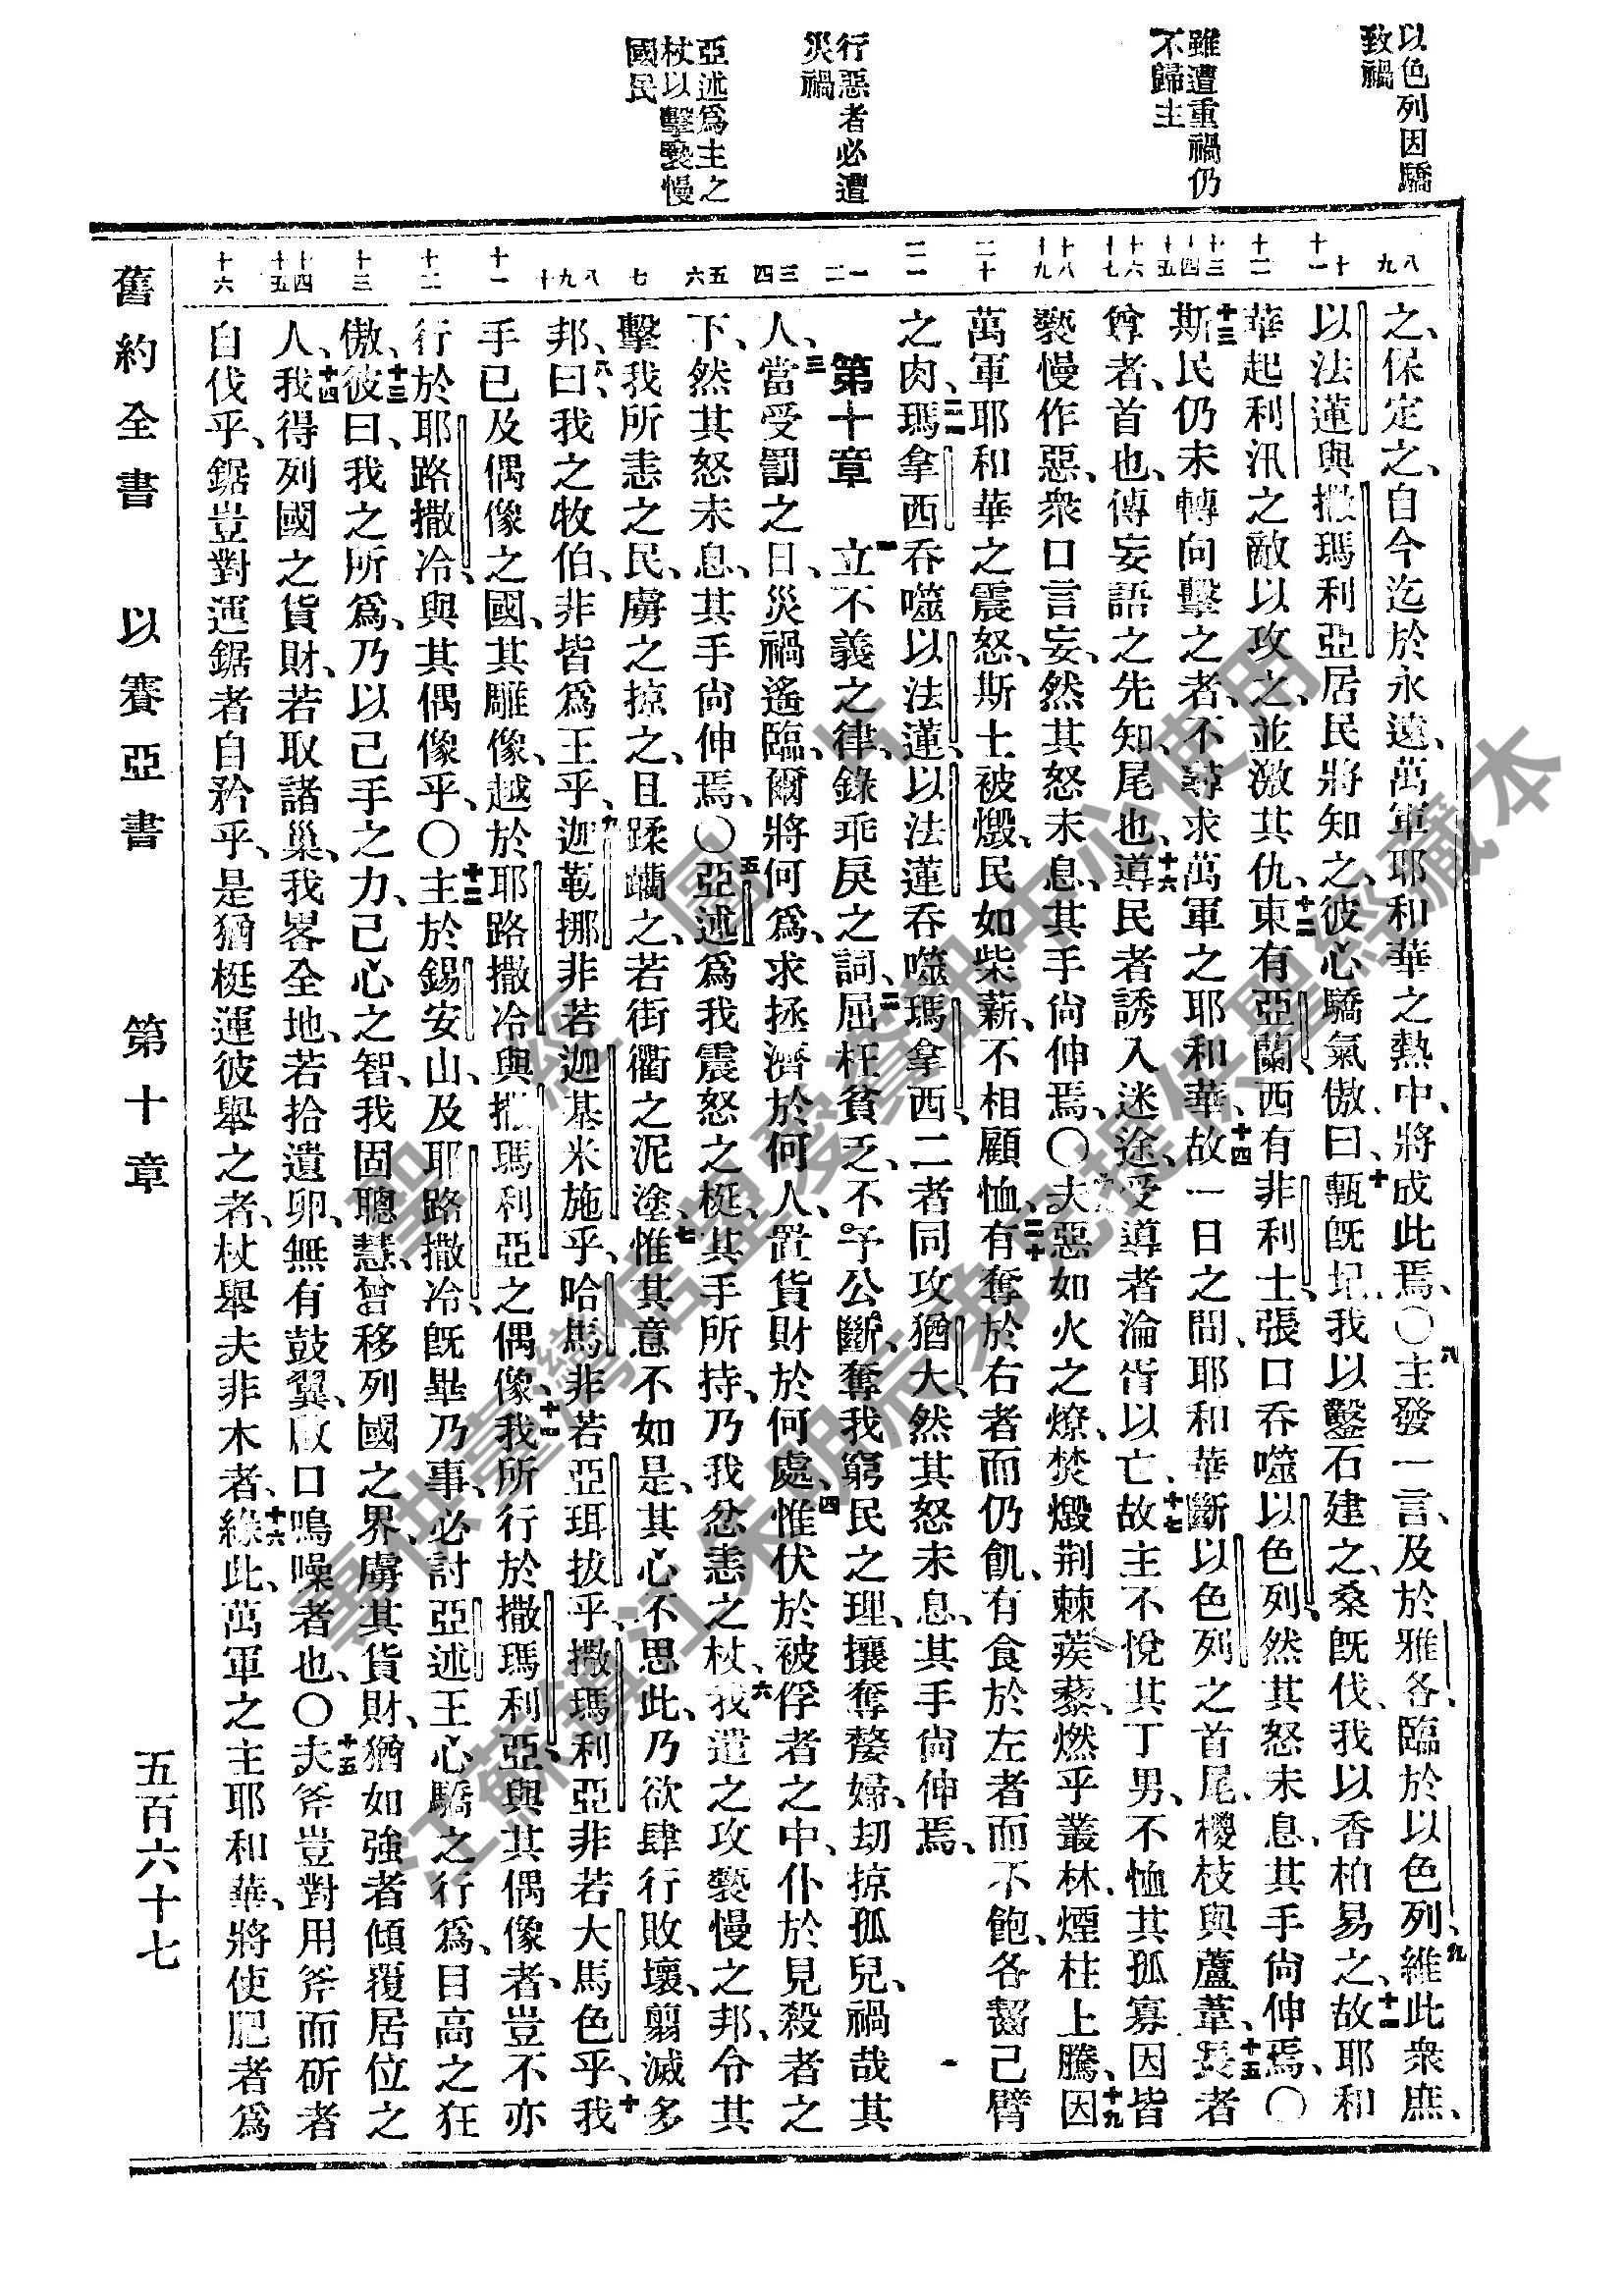 以色列因驕
致禍
雖遭重禍仍
不歸主
行惡者必遭
災禍
亞述爲主之
杖以擊褻慢
國民
八
九
十
十一
十二
十三
十四
十五
十六
十七
十八
十九
二十
二一
一
二
三
四
五
六
七
八
九
十
十一
十二
十三
十四
十五
十六
之、保定之、自今迄於永遠、萬軍耶和華之熱中、將成此焉、〇八主發一言、及於雅各、臨於以色列、九維此衆庶、
以法蓮與撒瑪利亞居民將知之、彼心驕氣傲曰、十甎旣圮、我以鑿石建之、桑旣伐、我以香柏易之、十一故耶和
華起利汛之敵以攻之、並激其仇、十二東有亞蘭、西有非利士、張口吞噬以色列、然其怒未息、其手尙伸焉、〇
十三斯民仍未轉向擊之者、不尋求萬軍之耶和華、十四故一日之間、耶和華斷以色列之首尾、椶枝與蘆葦、十五長者
尊者、首也、傳妄語之先知、尾也、十六導民者誘入迷途、受導者淪胥以亡、十七故主不悅其丁男、不恤其孤寡、因皆
褻慢作惡、衆口言妄、然其怒未息、其手尙伸焉、〇十八夫惡如火之燎、焚燬荆棘蒺藜、燃乎叢林、煙柱上騰、十九因
萬軍耶和華之震怒、斯土被燬、民如柴薪、不相顧恤、二十有奪於右者而仍飢、有食於左者而不飽、各齧己臂
之肉、二一瑪拿西吞噬以法蓮、以法蓮吞噬瑪拿西、二者同攻猶大、然其怒未息、其手尙伸焉、
第十章　一立不義之律、錄乖戾之詞、二屈枉貧乏、不予公斷、奪我窮民之理、攘奪嫠婦、刧掠孤兒、禍哉其
人、三當受罰之日、災禍遙臨、爾將何爲、求拯濟於何人、置貨財於何處、四惟伏於被俘者之中、仆於見殺者之
下、然其怒未息、其手尙伸焉、〇五亞述爲我震怒之梃、其手所持、乃我忿恚之杖、六我遣之攻褻慢之邦、令其
擊我所恚之民、虜之掠之、且蹂躪之、若街衢之泥塗、七惟其意不如是、其心不思此、乃欲肆行敗壞、翦滅多
邦、八曰、我之牧伯、非皆爲王乎、九迦勒挪非若迦基米施乎、哈馬非若亞珥拔乎、撒瑪利亞非若大馬色乎、十我
手已及偶像之國、其雕像、越於耶路撒冷與撒瑪利亞之偶像、十一我所行於撒瑪利亞與其偶像者、豈不亦
行於耶路撒冷、與其偶像乎、〇十二主於錫安山、及耶路撒冷、旣畢乃事、必討亞述王心驕之行爲、目高之狂
傲、十三彼曰、我之所爲、乃以己手之力、己心之智、我固聰慧、曾移列國之界、虜其貨財、猶如強者傾覆居位之
人、十四我得列國之貨財、若取諸巢、我畧全地、若拾遺卵、無有鼓翼、啟口鳴噪者也、〇十五夫斧豈對用斧而斫者
自伐乎、鋸豈對運鋸者自矜乎、是猶梃運彼舉之者、杖舉夫非木者、十六緣此、萬軍之主耶和華、將使肥者爲
舊約全書　以賽亞書　第十章　五百六十七
聖經圖片
專供臺灣信望愛資訊中心使用
江蘇鎮江朱明辰弟兄提供聖經藏本